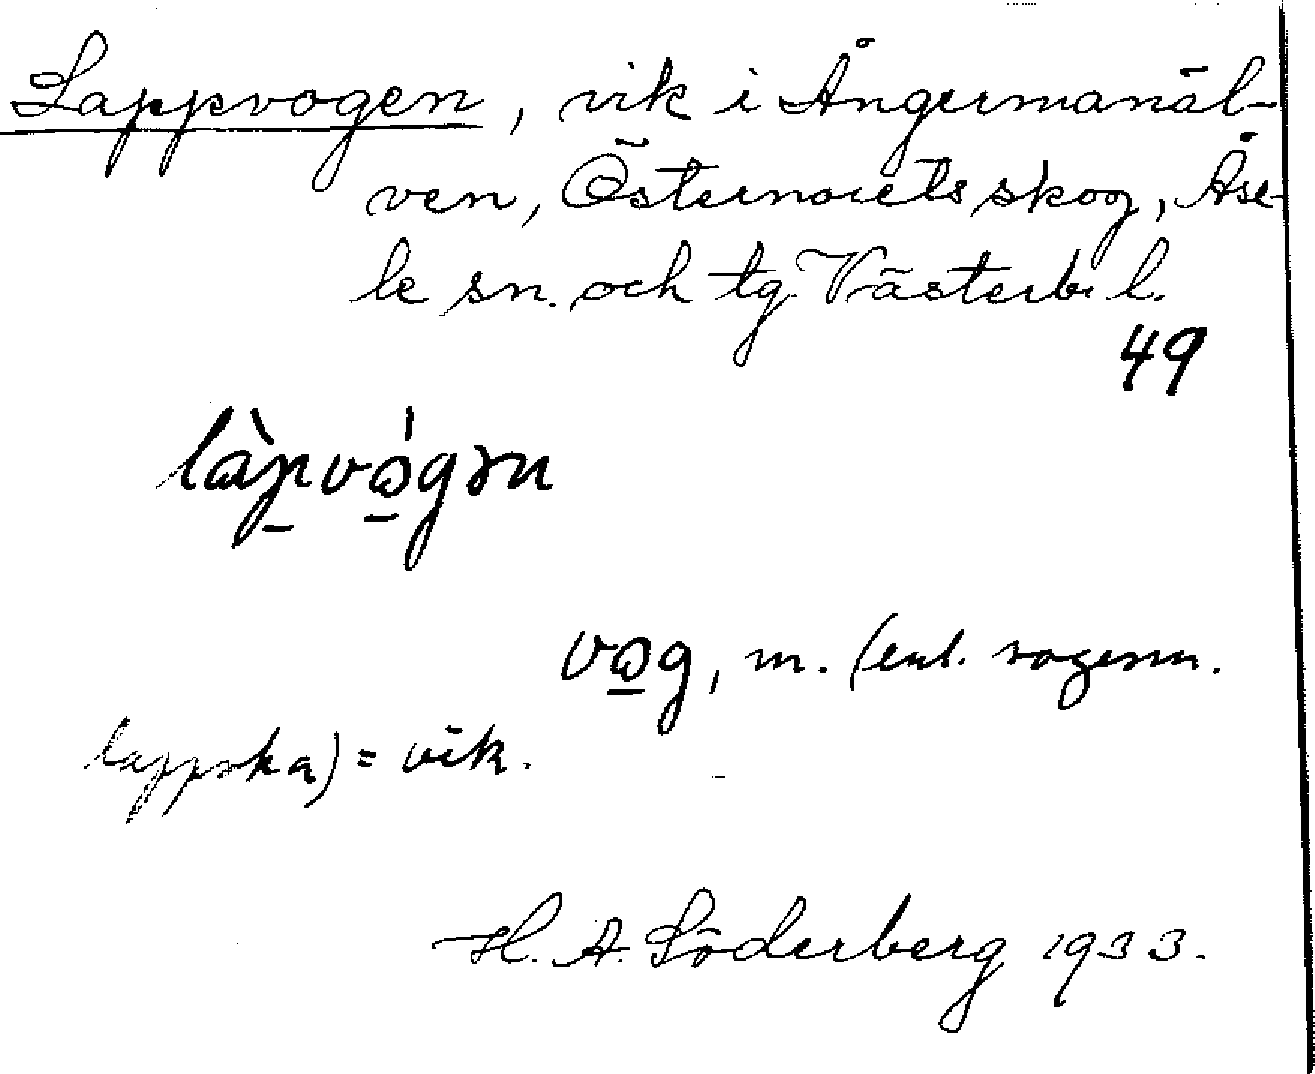 Lappvogen, vik i Ångermanäl-
ven, Östernorets skog, Åse-
le sn. och tg. Västerb. l.
49
làp̱vo̱̍gən
vo̱g, m. (enl. sagesm.
lappska) = vik.
H. A. Söderberg 1933.